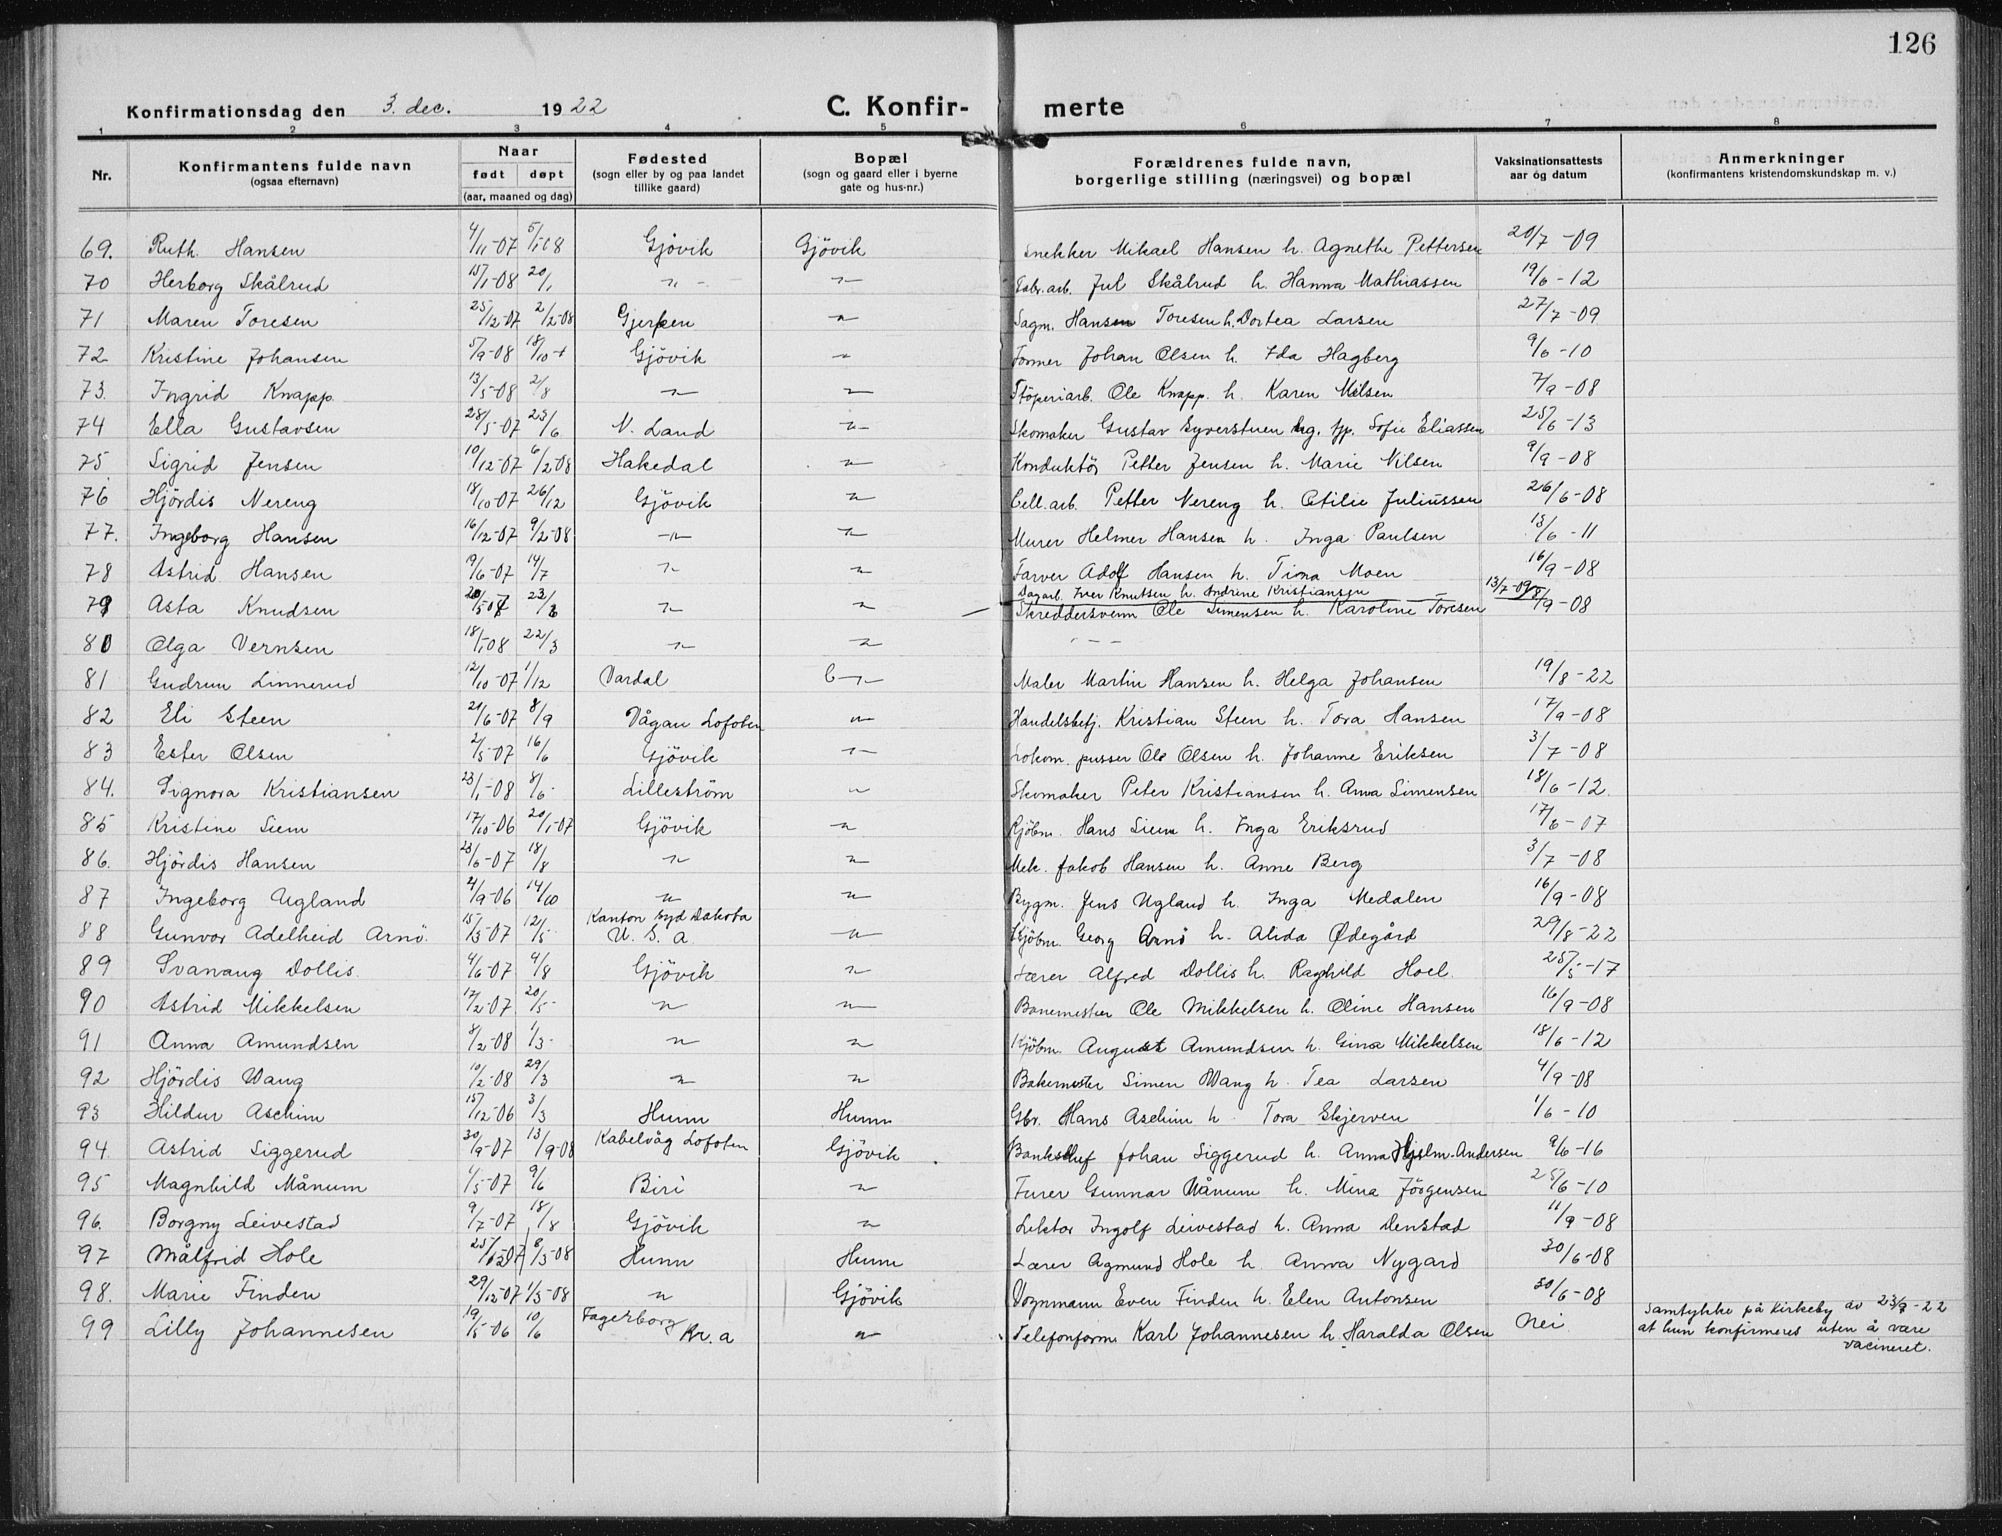 126
Konfirmationsdag den 3. dec. 1922 C. Konfir- merte
1 2 3 4 5 6 7 8
Nr. Konfirmantens fulde navn (ogsaa efternavn) Naar født døpt (aar, maaned og dag) Fødested (sogn eller by og paa landet tillike gaard) Bopæl (sogn og gaard eller i byerne gate og hus-nr.) Forældrenes fulde navn, borgerlige stilling (næringsvei) og bopæl Vaksinationsattests aar og datum Anmerkninger (konfirmantens kristendomskundskap m. v.)
69. Ruth Hansen 4/11-07 5/1 08 Gjövik Gjövik Snekker Mikael Hansen h. Agnethe Pettersen 20/7-09
70 Herborg Skålrud 15/1-08 20/1 -"- -"- Fabr.arb. Jul Skålrud h. Hanna Mathiassen 19/6-12
71 Maren Toresen 25/12-07 2/2-08 Gjerpen -"- Sagm. Hansen Toresen h. Dortea Larsen 27/7-09
72 Kristine Johansen 5/9-08 18/10 Gjövik -"- Former Johan Olsen h. Ida Hagberg 9/6-10
73. Ingrid Knapp 13/5-08 2/8 -"- -"- Stöperiarb. Ole Knapp. h. Karen Nilsen 7/9-08
74 Ella Gustavsen 28/5-07 23/6 N. Land -"- Skomaker Gustav Eyverstuen og. pp. Sofie Eliassen 25/6-13
75 Sigrid Jensen 10/12-07 6/2-08 Hakedal -"- Konduktör Petter Jensen h. Marie Nilsen 9/9-08
76 Hjördis Nereng 18/10-07 26/12 Gjövik -"- Cell.arb. Petter Nereng h. Otilie Juliussen 26/6-08
77. Ingeborg Hansen 16/12-07 9/2-08 -"- -"- Murer Helmer Hansen h. Inga Paulsen 13/6-11
78 Astrid Hansen 19/6-07 14/7 -"- -"- Farver Adolf Hansen h. Tina Moen 16/9-08
Dagarb. Iver Knutsen h. Andrine Kristiansen 13/7-09
79 Asta Knudsen 20/5 07 23/3 -"- -"- Skreddersvenn Ole Simensen h. Karoline Toresen /9-08
80 Olga Vernsen 18/1 08 22/3 -"- -"- - - -
81 Gudrun Linnerud 12/10-07 1/12 Vardal -"- Maler Martin Hansen h. Helga Johansen 19/8-22
82 Eli Steen 21/6-07 8/9 Vågan Lofoten -"- Handelsbetj. Kristian Steen h. Tora Hansen 17/9-08
83 Ester Olsen 2/5-07 16/6 Gjövik -"- Lokom. pusser Ole Olsen h. Johanne Eriksen 3/7-08
84. Signora Kristiansen 23/1-08 8/6 Lilleström -"- Skomaker Peter Kristiansen h. Anna Simensen 18/6-12
85 Kristine Siem 17/10-06 20/1-07 Gjövik -"- Kjöbm. Hans Siem h. Inga Eriksrud 17/6-07
86. Hjördis Hansen 23/6-07 18/8 -"- -"- Mek. Jakob Hansen h. Anne Berg 3/7-08
87 Ingeborg Ugland 4/9-06 14/10 -"- -"- Bygm. Jens Ugland h. Inga Medalen 16/9-08
88 Gunvor Adelheid Arnö. 15/3-07 12/5 Kanton Syd Dakota U. S. A. -"- Kjöbm. Georg Arnö h. Alida Ødegård 29/8-22
89 Svanaug Dollis 4/6-07 4/8 Gjövik -"- Lærer Alfred Dollis h. Ragnhild Hoel 25/5-17
90 Astrid Mikkelsen 17/2-07 20/5 -"- -"- Banemester Ole Mikkelsen h. Oline Hansen 16/9-08
91 Anna Amundsen 8/2-08 1/3 -"- -"- Kjöbm. August Amundsen h. Gina Mikkelsen 18/6-12
92 Hjördis Wang 10/2-08 29/3 -"- -"- Bakermester Simen Wang h. Tea Larsen 4/9-08
93 Hildur Aschim 15/12-06 3/3 Hunn Hunn Gbr. Hans Aschim h. Tora Skjerven 1/6-10
94 Astrid Siggerud 30/9-07 13/9-08 Kabelvåg Lofoten Gjövik Bankchef Johan Siggerud h. Anna Hjelm-Andersen 9/6-16
95 Magnhild Månum 1/5-07 9/6 Biri -"- Furer Gunnar Månum h. Mina Jörgensen 25/6-10
96. Borgny Leivestad 9/7-07 18/8 Gjövik -"- Lektor Ingolf Leivestad h. Anna Denstad 11/9-08
97 Målfrid Hole 07 8/3-08 Hunn Hunn Lærer Agmund Hole h. Anna Nygard 30/6-08
98. Marie Finden 29/12-07 1/3-08 -"- Gjövik Vognmann Even Finden h. Elen Antonsen 30/6-08
99 Lilly Johannesen 19/5-06 10/6 Fagerborg Kr.a -"- Telefonform Karl Johannesen h. Haralda Olsen Nei Samtykke på Kirkeby av 23/9-22
at hun konfirmeres uten å være
vacineret.